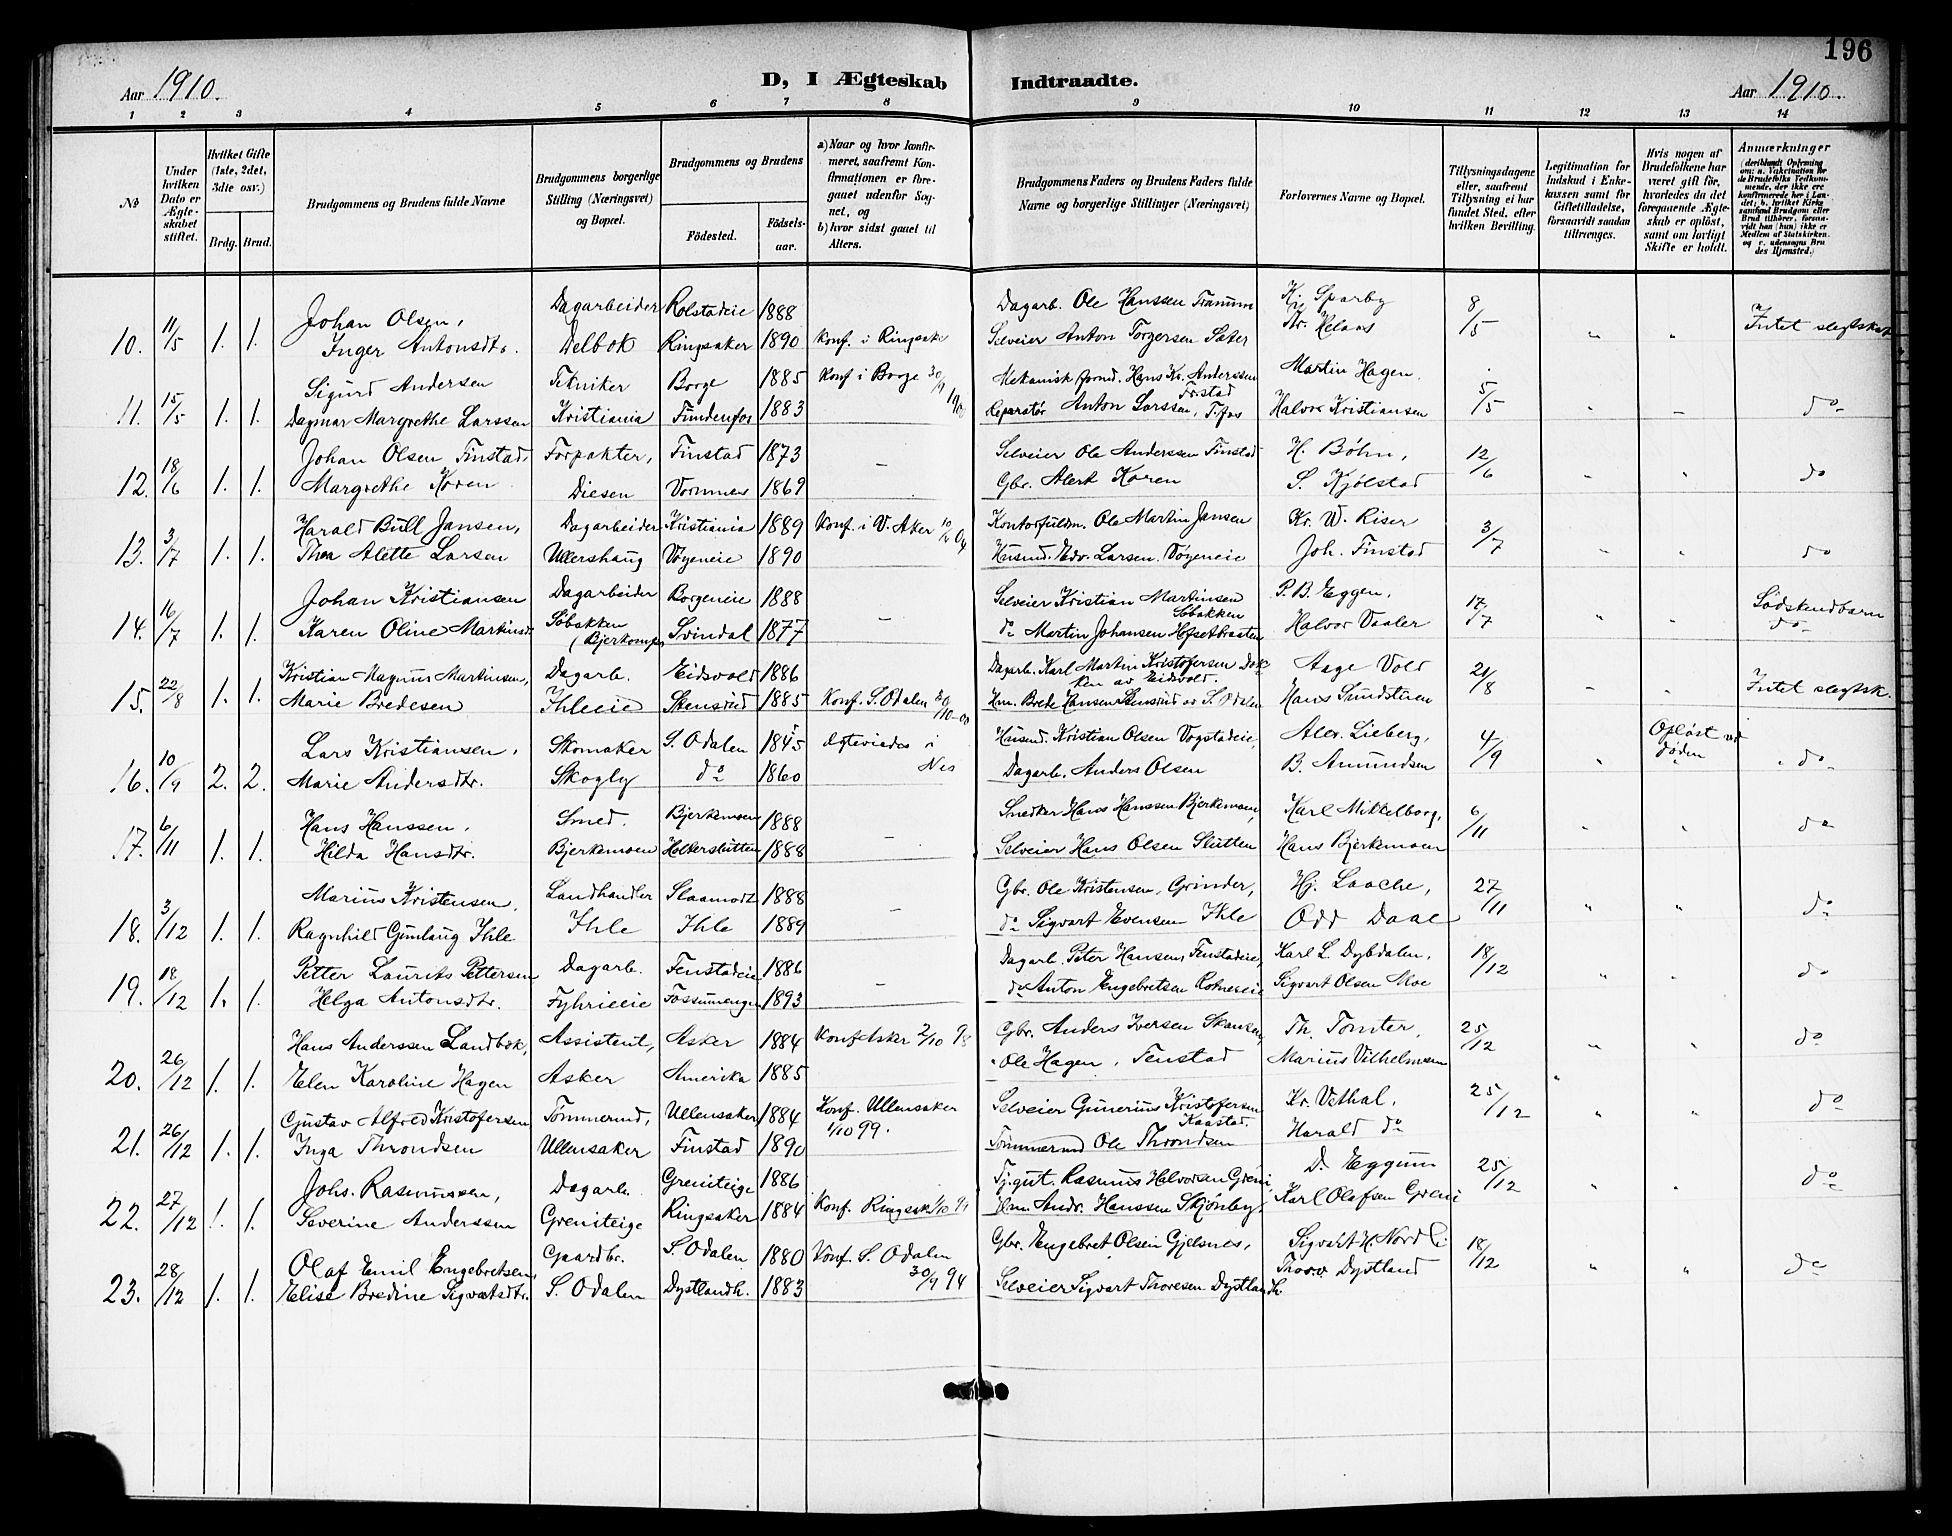 196
Aar 1910.
D, I Ægteskab Indtraadte.
Aar 1910.
1 2 3 4 5 6 7 8 9 10 11 12 13 14
No
Under hvilken Dato er Ægteskabet stiftet.
Hvilket Gifte (1ste, 2det, 3die osv.)
Brdg. Brud.
Brudgommens og Brudens fulde Navne
Brudgommens borgerlige Stilling (Næringsvei) og Bopæl.
Brudgommens og Brudens
Fødested.
Fødselsaar.
a) Naar og hvor konfirmeret, saafremt Konfirmationen er foregaaet udenfor Sognet, og
b) hvor sidst gaaet til Alters.
Brudgommens Faders og Brudens Faders fulde Navne og borgerlige Stillinger (Næringsvei)
Forlovernes Navne og Bopæl.
Tillysningsdagene eller, saafremt Tillysning ei har fundet Sted, efter hvilken Bevilling.
Legitimation for Indskud i Enkekassen samt for Giftetilladelse, forsaavidt saadan tiltrænges.
Hvis nogen af Brudefolkene har været gift før, hvorledes da det foregaaende Ægteskab er opløst, samt om lovligt Skifte er holdt.
Anmærkninger (deriblandt Oplysning om: a. Vakcination for de Brudefolks Vedkommende, der ikke ere konfirmerede her i Landet; b. hvilket Kirkesamfund Brudgom eller Brud tilhører, forsaavidt han (hun) ikke er Medlem af Statskirken. og c. udensogns Brudes Hjemsted.)
Johan Olsen, Dagarbeider Rolstadeie 1888 Dagarb. Ole Hanssen Tranum Kr. Sparby
10. 11/5 1. 1. Inger Antonsdtr. Delbok Ringsaker 1890 Konf. i Ringsaker Selveier Anton Torgersen Sater 8/5 " " Intet slegtskab
Sigurd Andersen Tekniker Borge 1885 Konf i Borge 30/9 Mekanisk formd. Hans Kr. Anderssen Fristad Martin Hagen.
11. 15/5 1. 1. Dagmar Margrethe Larssen Kristiania Fundenfos 1883 Reparatør Anton Larssen, Tifos Halvor Kristiansen 5/5 " " do
Johan Olsen Finstad, Forpakter, Finstad 1873 Selveier Ole Anderssen Finstad H. Bøhn,
12. 18/6 1. 1. Margrethe Koren Diesen Vormnes 1869 – Gbr. Alert Koren S. Kjølstad 12/6 " " do
Harald Bull Jansen, Dagarbeider Kristiania 1889 Konf. i V. Aker 10/4 04 Kontorfuldm. Ole Martin Jansen Kr. W. Riser
13. 3/7 1. 1. Thea Alette Larsen Ullershaug Vøyeneie 1890 Husmd. Edv. Larsen. Vøyeneie Joh. Finstad 3/7 " " do
Johan Kristiansen Dagarbeider Borgeneie 1888 Selveier Kristian Martinsen Søbakken P. B. Eggen, Sødskendbarn
14. 16/7 1. 1. Karen Oline Martinsd. Søbakken (Bjerkompen Svindal 1877 – do Martin Johansen Hofsetbraaten Halvor Vaaler 17/7 " " do
Kristian Magnus Martinsen, Dagarb. Eidsvold 1886 Dagarb. Karl Martin Kristofersen Dokken av Eidsvold. Aage Vold
15. 22/8 1. 1. Marie Bredesen Ihleeie Skensrud 1885 Konf. S. Odalen 30/10-00 Hm. Brede Hansen Skensrud av S. Odalen Hans Sundstuen 21/8 " " Intet slegtsk.
Lars Kristiansen, Skomaker S. Odalen 1845 Ægteviedes i Nes Husmd. Kristian Olsen Vogstadeie, Alex. Lieberg, Opløst ved døden
16. 10/9 2. 2. Marie Andersdtr. Skogly do 1860 Dagarb. Anders Olsen B. Amundsen 4/9 " do
Hans Hanssen, Smed. Bjerkemoen 1888 Snedker Hans Hanssen Bjerkemoen, Karl Mikkelborg,
17. 6/11 1. 1. Hilda Hansdtr. Bjerkemoen Holterslutten 1888 – Selveier Hans Olsen Slutten Hans Bjerkemoen 6/11 " " do
Marius Kristensen, Landhandler Slaamodt 1888 Gbr. Ole Kristensen, Grinder, Hj. Laache,
18. 3/12 1. 1. Ragnhild Gunlaug Ihle Ihle Ihle 1889 – do Sigvart Evensen Ihle Odd Daae 27/11 " " do
Petter Laurits Pettersen Dagarb. Fenstadeie 1886 Dagarb. Peter Hansen, Fenstadeie, Karl L. Dybdalen,
19. 18/12 1. 1. Helga Antonsdtr. Fyhrieeie Fossumengen 1893 – do Anton Engebretsen Rotneseie Sigvart Olsen Moe 18/12 " " do
Hans Anderssen Landbøk, Assistent, Asker 1884 Konf Asker 2/10 98 Gbr. Anders Iversen Skansen Th. Tomter,
20. 26/12 1. 1. Elen Karoline Hagen Asker Amerika 1885 " Ole Hagen, Fenstad Marius Vilhelmsen 25/12 " " do
Gustav Alfred Kristofersen Tømmermd, Ullensaker 1884 Konf. Ullensaker 1/10 99. Selveier Gunerius Kristofersen Kaastad. Kr. Vethal,
21. 26/12 1. 1. Inga Throndsen Ullensaker Finstad 1890 Tømmermd Ole Throndsen Harald do 25/12 " " do
Johs. Rasmussen, Dagarb. Greniteige 1886 Tj.gut. Rasmus Halvorsen Greni, D. Eggum
22. 27/12 1. 1. Severine Anderssen Greniteige Ringsaker 1884 Konf. Ringsak 1/10 99 Hm. Andr. Hanssen Skjønby, Karl Olafsen Greni 25/12 " " do
Olaf Emil Engebretsen, Gaardbr. S. Odalen 1880 Konf. S. Odalen 30/9 94 Gbr. Engebret Olsen Gjelsnes, Sigvart H. Nordli
23. 28/12 1. 1. Elise Bredine Sigvartsdtr. S. Odalen Dystlandh. 1883 Selveier Sigvart Thoresen Dystlandh. Thorv. Dystland 18/12 " " do